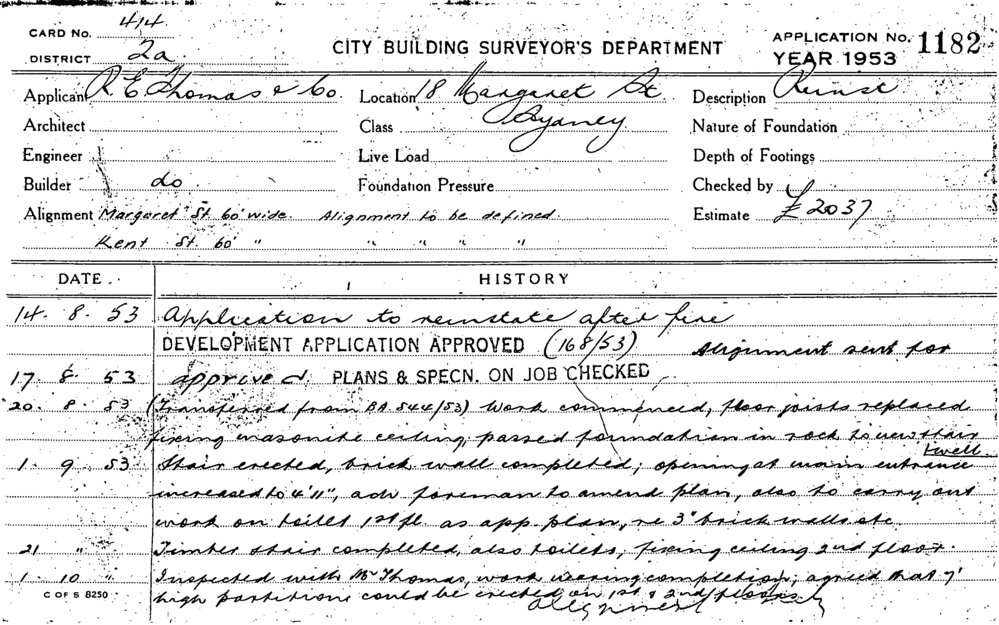 CARD No. 414
DISTRICT 2a
CITY BUILDING SURVEYOR'S DEPARTMENT
APPLICATION No. 1182
YEAR 1953
Applicant R E Thomas & Co. Location 18 Margaret St. Description Reinst
Architect Class Sydney Nature of Foundation
Engineer Live Load Depth of Footings
Builder do Foundation Pressure Checked by
Alignment Margaret St. 60' wide. Alignment to be defined. Estimate £2037
Kent St. 60' " " " " "
DATE HISTORY
14. 8. 53 Application to reinstate after fire
DEVELOPMENT APPLICATION APPROVED (168/53) Alignment sent for
17. 8. 53 approved PLANS & SPECN. ON JOB CHECKED
20. 8. 53 (Transferred from BA 544/53) Work commenced, floor joists replaced
fixing masonite ceiling, passed foundation in rock to new stair
well.
1. 9. 53 Stair erected, brick wall completed; opening at main entrance
increased to 4'11", adv. foreman to amend plan, also to carry out
work on toilet 1st fl. as app. plan, re 3" brick walls etc
21 " Timber stair completed, also toilets, fixing ceiling 2nd floor.
1. 10 " Inspected with Mr Thomas, work nearing completion; agreed that 7'
high partitions could be erected on 1st & 2nd floors
C OF S 8250